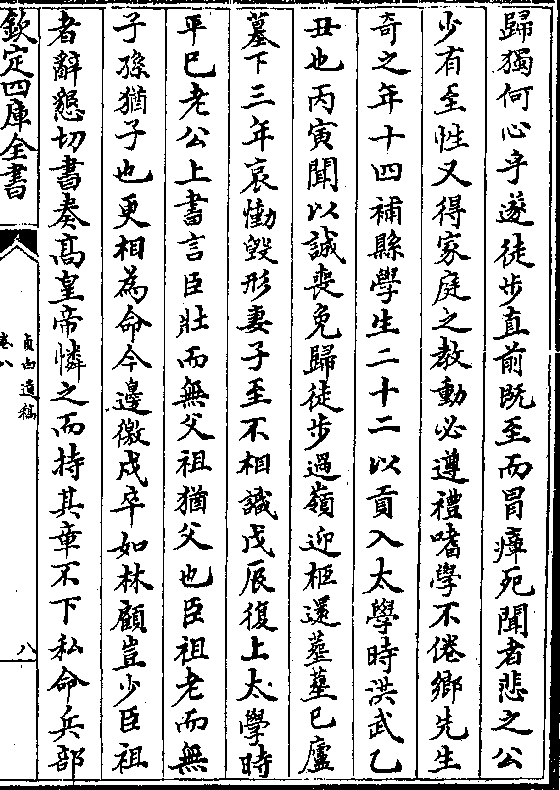 歸獨何心乎遂徒步直前既至而冒瘴死聞者悲之公
少有至性又得家庭之教動必遵禮嗜學不倦鄉先生
奇之年十四補縣學生二十二以貢入太學時洪武乙
丑也丙寅聞以誠喪免歸徒步過嶺迎柩還塟塟已廬
墓下三年哀慟毀形妻子至不相識戊辰復上太學時
平巳老公上書言臣壯而無父祖猶父也臣祖老而無
子孫猶子也更相為命今邊徼戍卒如林顧豈少臣祖
者辭懇切書奏髙皇帝憐之而持其章不下私命兵部
欽定四庫全書
卷八
八